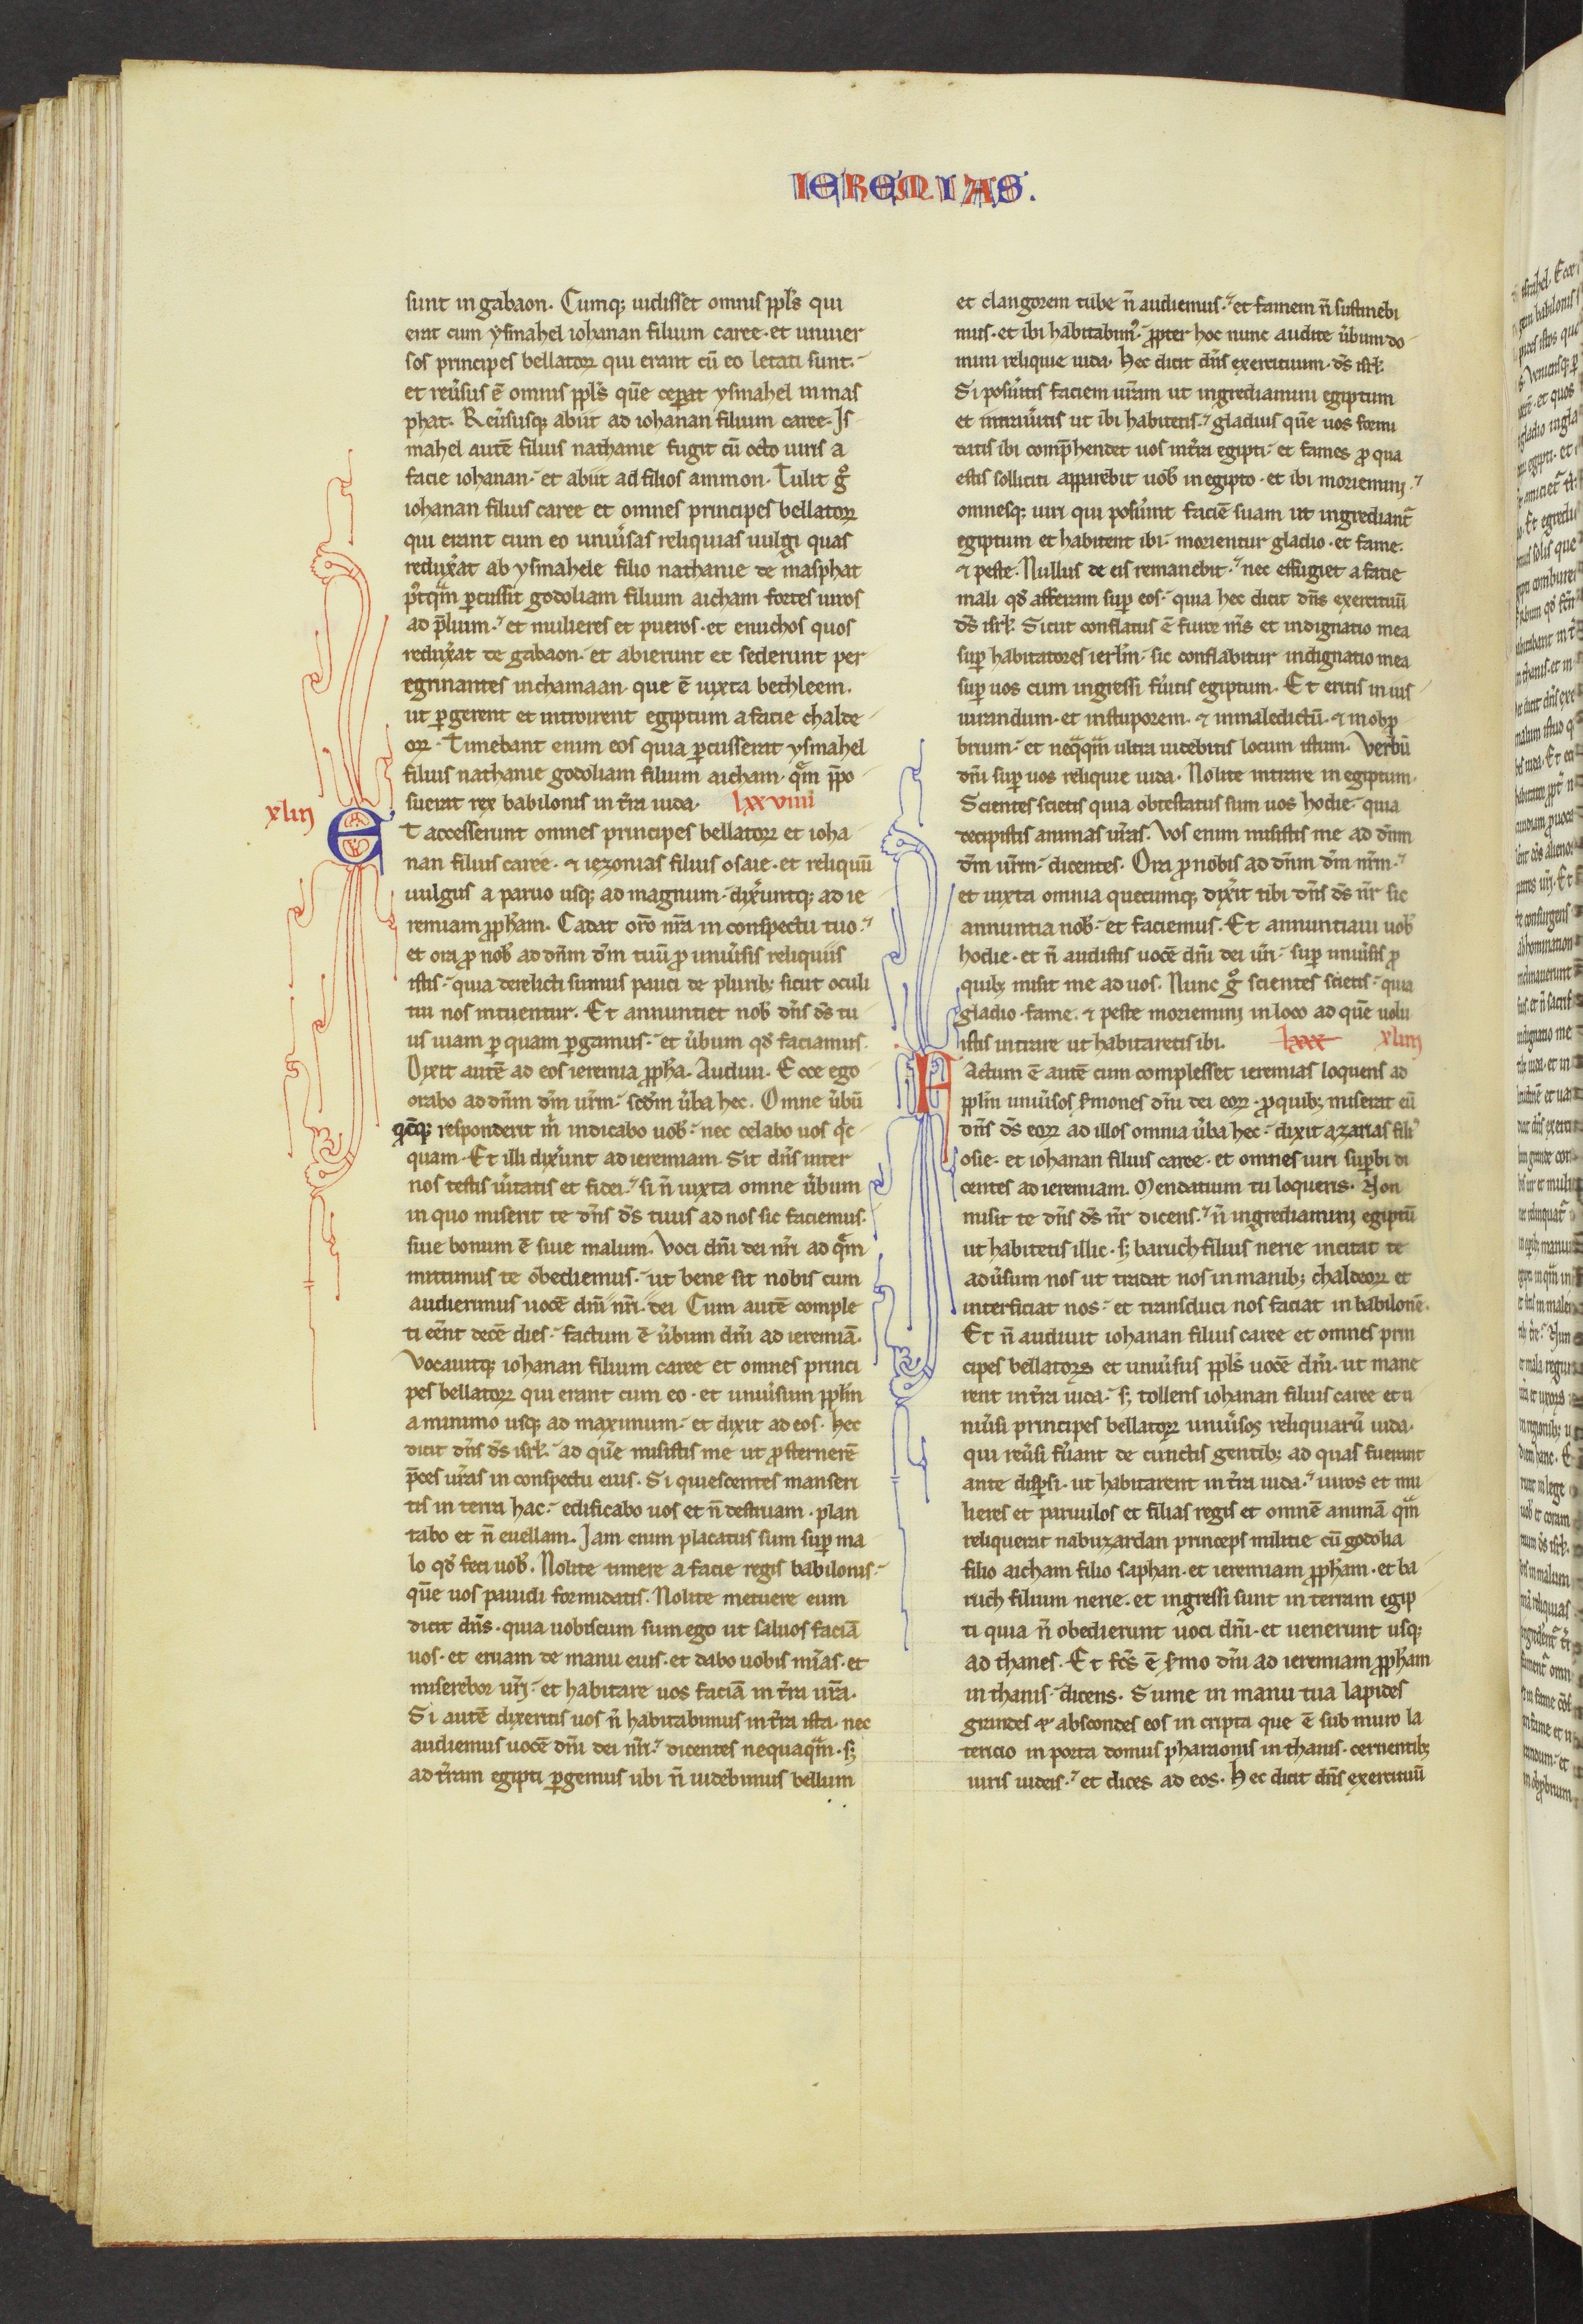 IEREMIAS.
sunt in gabaon. Cumq; uidisset omnis ppl's qui
erat cum ysmahel iohanan filium caree. et uniuer
sos principes bellatoꝝ qui erant cū eo letati sunt.
et reu̓sus ē omnis ppl's quē cep̄at ysmahel in mas
phat. Reu̓susq; abiit ad iohanan filium caree. Js
mahel autē filius nathanie fugit cū octo uiris a
facie iohanan. et abiit ad filios ammon. Tulit gͦ
iohanan filius caree et omnes principes bellatoꝝ
qui erant cum eo uniu̓sas reliquias uulgi quas
redux̓at ab ysmahele filio nathanie de masphat
p̓tqͣm ꝑcussit godoliam filium aicham fortes uiros
ad p̄lium. et mulieres et pueros. et enuchos quos
redux̓at de gabaon. et abierunt et sederunt per
egrinantes in chamaan. que ē iuxta bethleem.
ut ꝑgerent et introirent egiptum a facie chalde
oꝝ. Timebant enim eos quia ꝑcusserat ysmahel
filius nathanie godoliam filium aicham. qͣm p̄po
suerat rex babilonis in t̓ra iuda. lxxviiii
xlii
ET accesserunt omnes principes bellatoꝝ et ioha
nan filius caree. ⁊ iezonias filius osaie. et reliquū
uulgus a paruo usq; ad magnum. dix̓untq; ad ie
remiam ꝓpham. Cadat orō nr̄a in conspectu tuo.
et ora ꝓ nob' ad dn̄m dm̄ tuū ꝓ uniu̓sis reliquiis
istis. quia derelicti sumus pauci de plurib; sicut oculi
tui nos intuentur. Et annuntiet nob' dn̄s ds̄ tu
us uiam ꝑ quam ꝑgamus. et u̓bum qd' faciamus.
Dixit autē ad eos ieremia ꝓpha. Audiui. Ecce ego
orabo ad dn̄m dm̄ ur̄m. scd̄m u̓ba hec. Omne u̓bū
qd̄cq; responderit m̓ indicabo uob'. nec celabo uos qͥc
quam. Et illi dix̓unt ad ieremiam. Sit dn̄s inter
nos testis u̓itatis et fidei. si n̄ iuxta omne u̓bum
in quo miserit te dn̄s ds̄ tuus ad nos sic faciemus.
siue bonum ē siue malum. Voci dn̄i dei nr̄i ad qͣm
mittimus te obediemus. ut bene sit nobis cum
audierimus uocē dn̄i nr̄i dei Cum autē comple
ti eēnt decē dies. factum ē u̓bum dn̄i ad ieremiā.
Vocauitq; iohanan filium caree et omnes princi
pes bellatoꝝ qui erant cum eo. et uniu̓sum pplm̄
a minimo usq; ad maximum. et dixit ad eos. hec
dicit dn̄s ds̄ isrl'. ad quē misistis me ut ꝓsternerē
p̄ces ur̄as in conspectu eius. Si quiescentes manseri
tis in terra hac. edificabo uos et n̄ destruam. plan
tabo et n̄ euellam. Jam enim placatus sum sup̄ ma
lo qd' feci uob'. Nolite timere a facie regis babilonis.
quē uos pauidi formidatis. Nolite metuere eum
dicit dn̄s. quia uobiscum sum ego ut saluos faciā
uos. et eruam de manu eius. et dabo uobis mi̓as. et
miserebor ur̄i. et habitare uos faciā in t̓ra ur̄a.
Si autē dixeritis uos n̄ habitabimus in t̓ra ista. nec
audiemus uocē dn̄i dei nr̄i. dicentes nequaqͣm. s;
ad t̓ram egipti ꝑgemus ubi n̄ uidebimus bellum
et clangorem tube n̄ audiemus. et famem n̄ sustinebi
mus. et ibi habitabim'. ꝓpter hoc nunc audite u̓bum do
mini reliquie iuda. Hec dicit dn̄s exercituum. ds̄ isrl'.
Si posu̓itis faciem ur̄am ut ingrediamini egiptum
et intrau̓itis ut ibi habitetis. gladius quē uos formi
datis ibi comp̄hendet uos in t̓ra egipti. et fames ꝓ qua
estis solliciti apparebit uob' in egipto. et ibi moriemini.
omnesq; uiri qui posu̓unt faciē suam ut ingrediant᷑
egiptum et habitent ibi. morientur gladio. et fame.
⁊ peste. Nullus de eis remanebit. nec effugiet a facie
mali qd' afferam sup̄ eos. quia hec dicit dn̄s exercituū
ds̄ isrl'. Sicut conflatus ē furor m̄s et indignatio mea
sup̄ habitatores ierl̄m. sic conflabitur indignatio mea
sup̄ uos cum ingressi fu̓itis egiptum. Et eritis in ius
iurandum. et in stuporem. ⁊ in maledictū. ⁊ in obꝓ
brium. et neqͣqͣm ultra uidebitis locum istum. Verbū
dn̄i sup̄ uos reliquie iuda. Nolite intrare in egiptum.
Scientes scietis quia obtestatus sum uos hodie. quia
decepistis animas ur̄as. Vos enim misistis me ad dn̄m
dm̄ ur̄m. dicentes. Ora ꝓ nobis ad dn̄m dm̄ nr̄m.
et iuxta omnia quecumq; dix̓it tibi dn̄s ds̄ nr̄ sic
annuntia nob'. et faciemus. Et annuntiaui uob'
hodie. et n̄ audistis uocē dn̄i dei ur̄i. sup̄ uniu̓sis ꝓ
quib; misit me ad uos. Nunc gͦ scientes scietis. quia
gladio. fame. ⁊ peste moriemini in loco ad quē uolu
istis intrare ut habitaretis ibi. lxxx xliii
FActum ē autē cum complesset ieremias loquens ad
pplm̄ uniu̓sos s̓mones dn̄i dei eoꝝ. ꝓ quib; miserat eū
dn̄s ds̄ eoꝝ ad illos omnia u̓ba hec. dixit azarias fili'
osie. et iohanan filius caree. et omnes uiri suꝑbi di
centes ad ieremiam. Mendatium tu loqueris. Non
misit te dn̄s ds̄ nr̄ dicens. n̄ ingrediamini egiptū
ut habitetis illic. s; baruch filius nerie incitat te
adu̓sum nos ut tradat nos in manib; chaldeoꝝ et
interficiat nos. et transduci nos faciat in babilonē.
Et n̄ audiuit iohanan filius caree et omnes prin
cipes bellatoꝝ et uniu̓sus ppl's uocē dn̄i. ut mane
rent in t̓ra iuda. s; tollens iohanan filius caree et u
niu̓si principes bellatoꝝ uniu̓sos reliquiarū iuda.
qui reu̓si fu̓ant de cunctis gentib; ad quas fuerant
ante disp̄si. ut habitarent in t̓ra iuda. uiros et mu
lieres et paruulos et filias regis et omnē animā qͣm
reliquerat nabuzardan princeps militie cū godolia
filio aicham filio saphan. et ieremiam ꝓpham. et ba
ruch filium nerie. et ingressi sunt in terram egip
ti quia n̄ obedierunt uoci dn̄i. et uenerunt usq;
ad thanes. Et fc̄s ē s̓mo dn̄i ad ieremiam ꝓpham
in thanis. dicens. Sume in manu tua lapides
grandes ⁊ abscondes eos in cripta que ē sub muro la
tericio in porta domus pharaonis in thanis. cernentib;
uiris iudeis. et dices ad eos. Hec dicit dn̄s exercituū